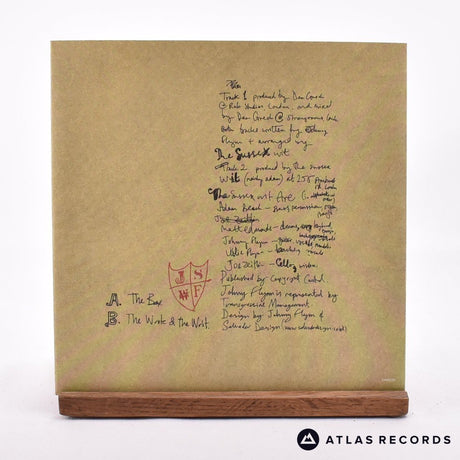 Track 1 produced by Dan Gored
@ Rak Studios London, and mixed
by Dan Gored @ Strongroom
Both tracks written by Johnny
Flynn + arranged by
The Sussex wit
Track 2 produced by the Sussex
Wit (mainly adam) at 255
The Sussex wit Are
Adam Beach - Bass percussion
Joe Zeitlin
Matt Edmonds - drums
Johnny Flynn - guitar vocals
Lillie Flynn - backing vocals
Joe Zeitlin - Cello
Published by Copyright Control.
Johnny Flynn is represented by
Transgressive Management.
Design by Johnny Flynn &
Salvador Design (www.salvadordesign.co.uk)
J S
W F
A. The Box
B. The Wrote & the Writ.
ATLAS RECORDS